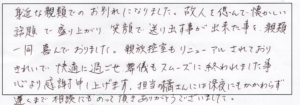 身近な親類でのお別れになりました。故人を偲んで懐かしい
話題で盛り上がり笑顔で送り出す事が出来た事を、親類
一同喜んでおりました。親族控室もリニューアルされており
きれいで快適に過ごせ葬儀もスムーズに終われました事
心より感謝申し上げます。担当の様さんには深夜にもかかわらず
遅くまで相談にものって頂きありがとうございました。